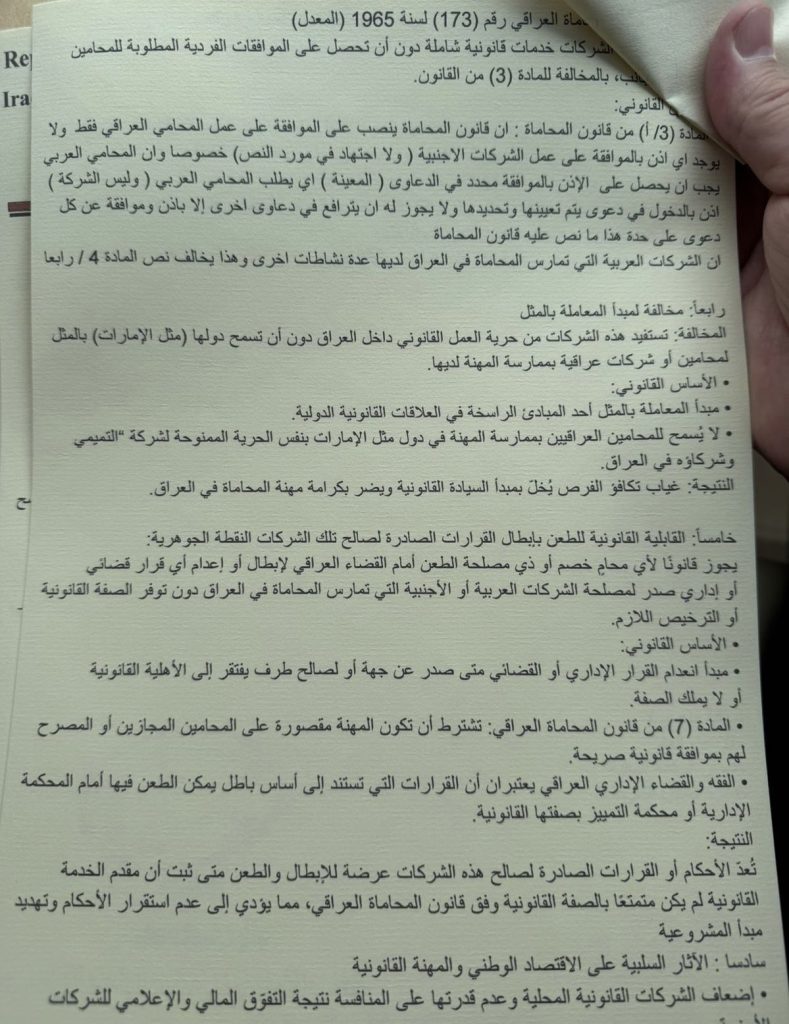 ماماة العراقي رقم (173) لسنة 1965 (المعدل)
الشركات خدمات قانونية شاملة دون أن تحصل على الموافقات الفردية المطلوبة للمحامين
بالمخالفة للمادة (3) من القانون.
القانوني:
(3/ أ) من قانون المحاماة : ان قانون المحاماة ينصب على الموافقة على عمل المحامي العراقي فقط ولا
يوجد اي اذن بالموافقة على عمل الشركات الاجنبية ( ولا اجتهاد في مورد النص) خصوصا وان المحامي العربي
يجب ان يحصل على الإذن بالموافقة محدد في الدعاوى ( المعينة ) اي يطلب المحامي العربي ( وليس الشركة )
اذن بالدخول في دعوى يتم تعيينها وتحديدها ولا يجوز له ان يترافع في دعاوى اخرى إلا باذن وموافقة عن كل
دعوى على حدة هذا ما نص عليه قانون المحاماة
ان الشركات العربية التي تمارس المحاماة في العراق لديها عدة نشاطات اخرى وهذا يخالف نص المادة 4 / رابعا
رابعاً: مخالفة لمبدأ المعاملة بالمثل
المخالفة: تستفيد هذه الشركات من حرية العمل القانوني داخل العراق دون أن تسمح دولها (مثل الإمارات) بالمثل
لمحامين أو شركات عراقية بممارسة المهنة لديها.
• الأساس القانوني:
• مبدأ المعاملة بالمثل أحد المبادئ الراسخة في العلاقات القانونية الدولية.
• لا يُسمح للمحامين العراقيين بممارسة المهنة في دول مثل الإمارات بنفس الحرية الممنوحة لشركة "التميمي
وشركاؤه في العراق.
النتيجة: غياب تكافؤ الفرص يُخلّ بمبدأ السيادة القانونية ويضر بكرامة مهنة المحاماة في العراق.
خامساً: القابلية القانونية للطعن بإبطال القرارات الصادرة لصالح تلك الشركات النقطة الجوهرية:
يجوز قانونًا لأي محامٍ خصم أو ذي مصلحة الطعن أمام القضاء العراقي لإبطال أو إعدام أي قرار قضائي
أو إداري صدر لمصلحة الشركات العربية أو الأجنبية التي تمارس المحاماة في العراق دون توفر الصفة القانونية
أو الترخيص اللازم.
• الأساس القانوني:
• مبدأ انعدام القرار الإداري أو القضائي متى صدر عن جهة أو لصالح طرف يفتقر إلى الأهلية القانونية
أو لا يملك الصفة.
• المادة (7) من قانون المحاماة العراقي: تشترط أن تكون المهنة مقصورة على المحامين المجازين أو المصرح
لهم بموافقة قانونية صريحة.
• الفقه والقضاء الإداري العراقي يعتبران أن القرارات التي تستند إلى أساس باطل يمكن الطعن فيها أمام المحكمة
الإدارية أو محكمة التمييز بصفتها القانونية.
النتيجة:
تُعدّ الأحكام أو القرارات الصادرة لصالح هذه الشركات عرضة للإبطال والطعن متى ثبت أن مقدم الخدمة
القانونية لم يكن متمتعًا بالصفة القانونية وفق قانون المحاماة العراقي، مما يؤدي إلى عدم استقرار الأحكام وتهديد
مبدأ المشروعية
سادسا : الآثار السلبية على الاقتصاد الوطني والمهنة القانونية
• إضعاف الشركات القانونية المحلية وعدم قدرتها على المنافسة نتيجة التفوّق المالي والإعلامي للشركات
Re
Ira